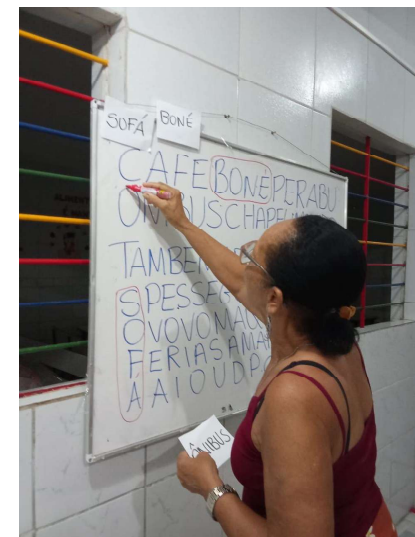 SOFÁ BONÉ
CAFEBONEPERABU
BUSCHAPE
TAMBEM
SPESSEG
OVOVOMAO
FERIASAMA
AAIOUDP
ÔNIBUS